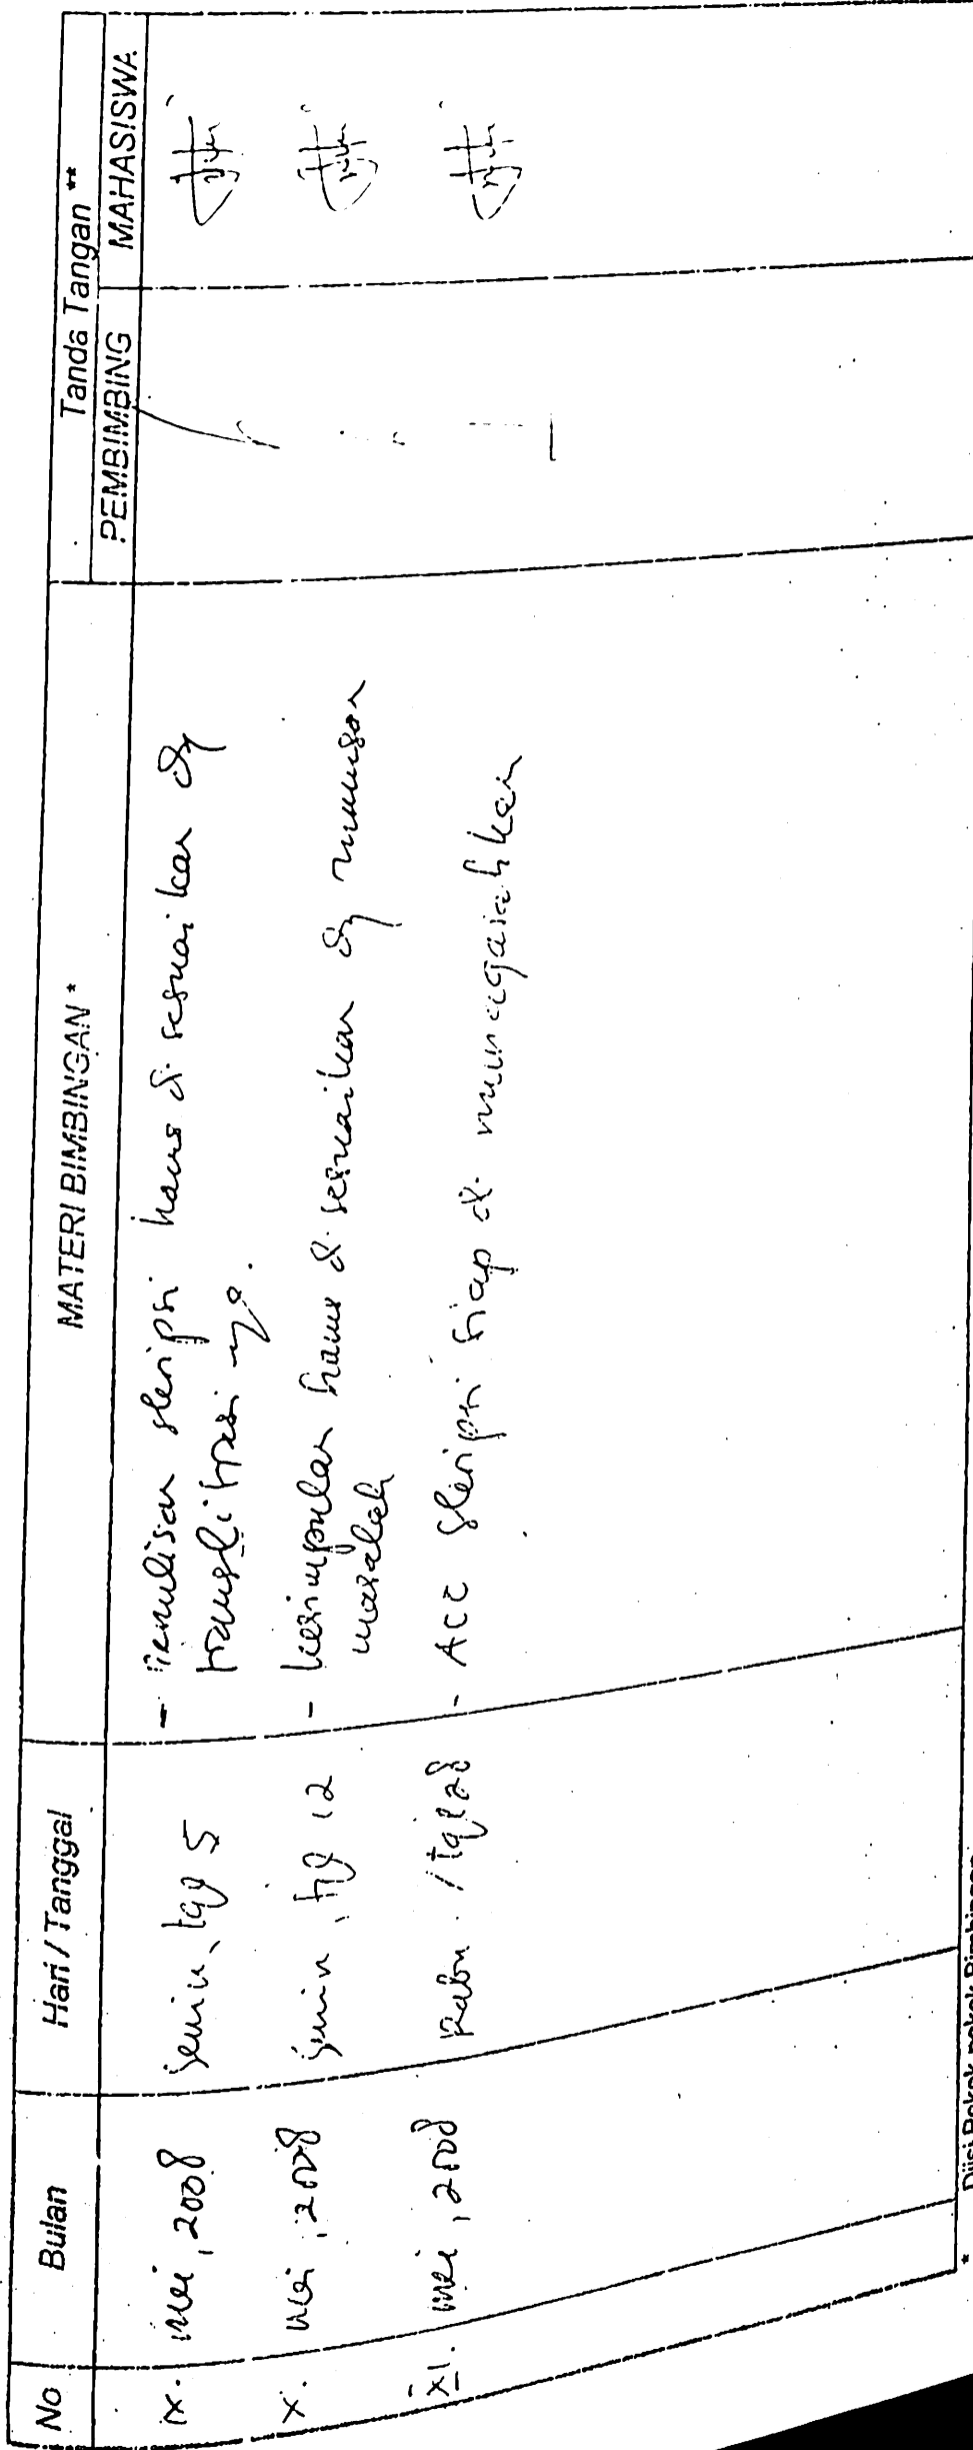 No Bulan Hari / Tanggal MATERI BIMBINGAN * Tanda Tangan **
PEMBIMBING MAHASISWA
IX. Mei, 2008 Senin, tgl 5 - Penulisan skripsi harus di sesuaikan dg
translitrasi nya.
X. Mei, 2008 Senin, tgl 12 - Kesimpulan harus di sesuaikan dg rumusan
masalah
XI. Mei, 2008 Rabu / tgl 28 - Acc Skripsi siap di munaqasahkan
* Diisi Pokok-pokok Bimbingan